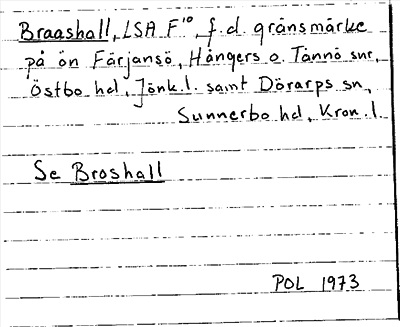 Braashall, LSA F¹⁰, f.d. gränsmärke
på ön Färjansö, Hångers o. Tånnö snr,
Östbo hd, Jönk.l. samt Dörarps sn,
Sunnerbo hd, Kron.l.
Se Broshall
POL 1973